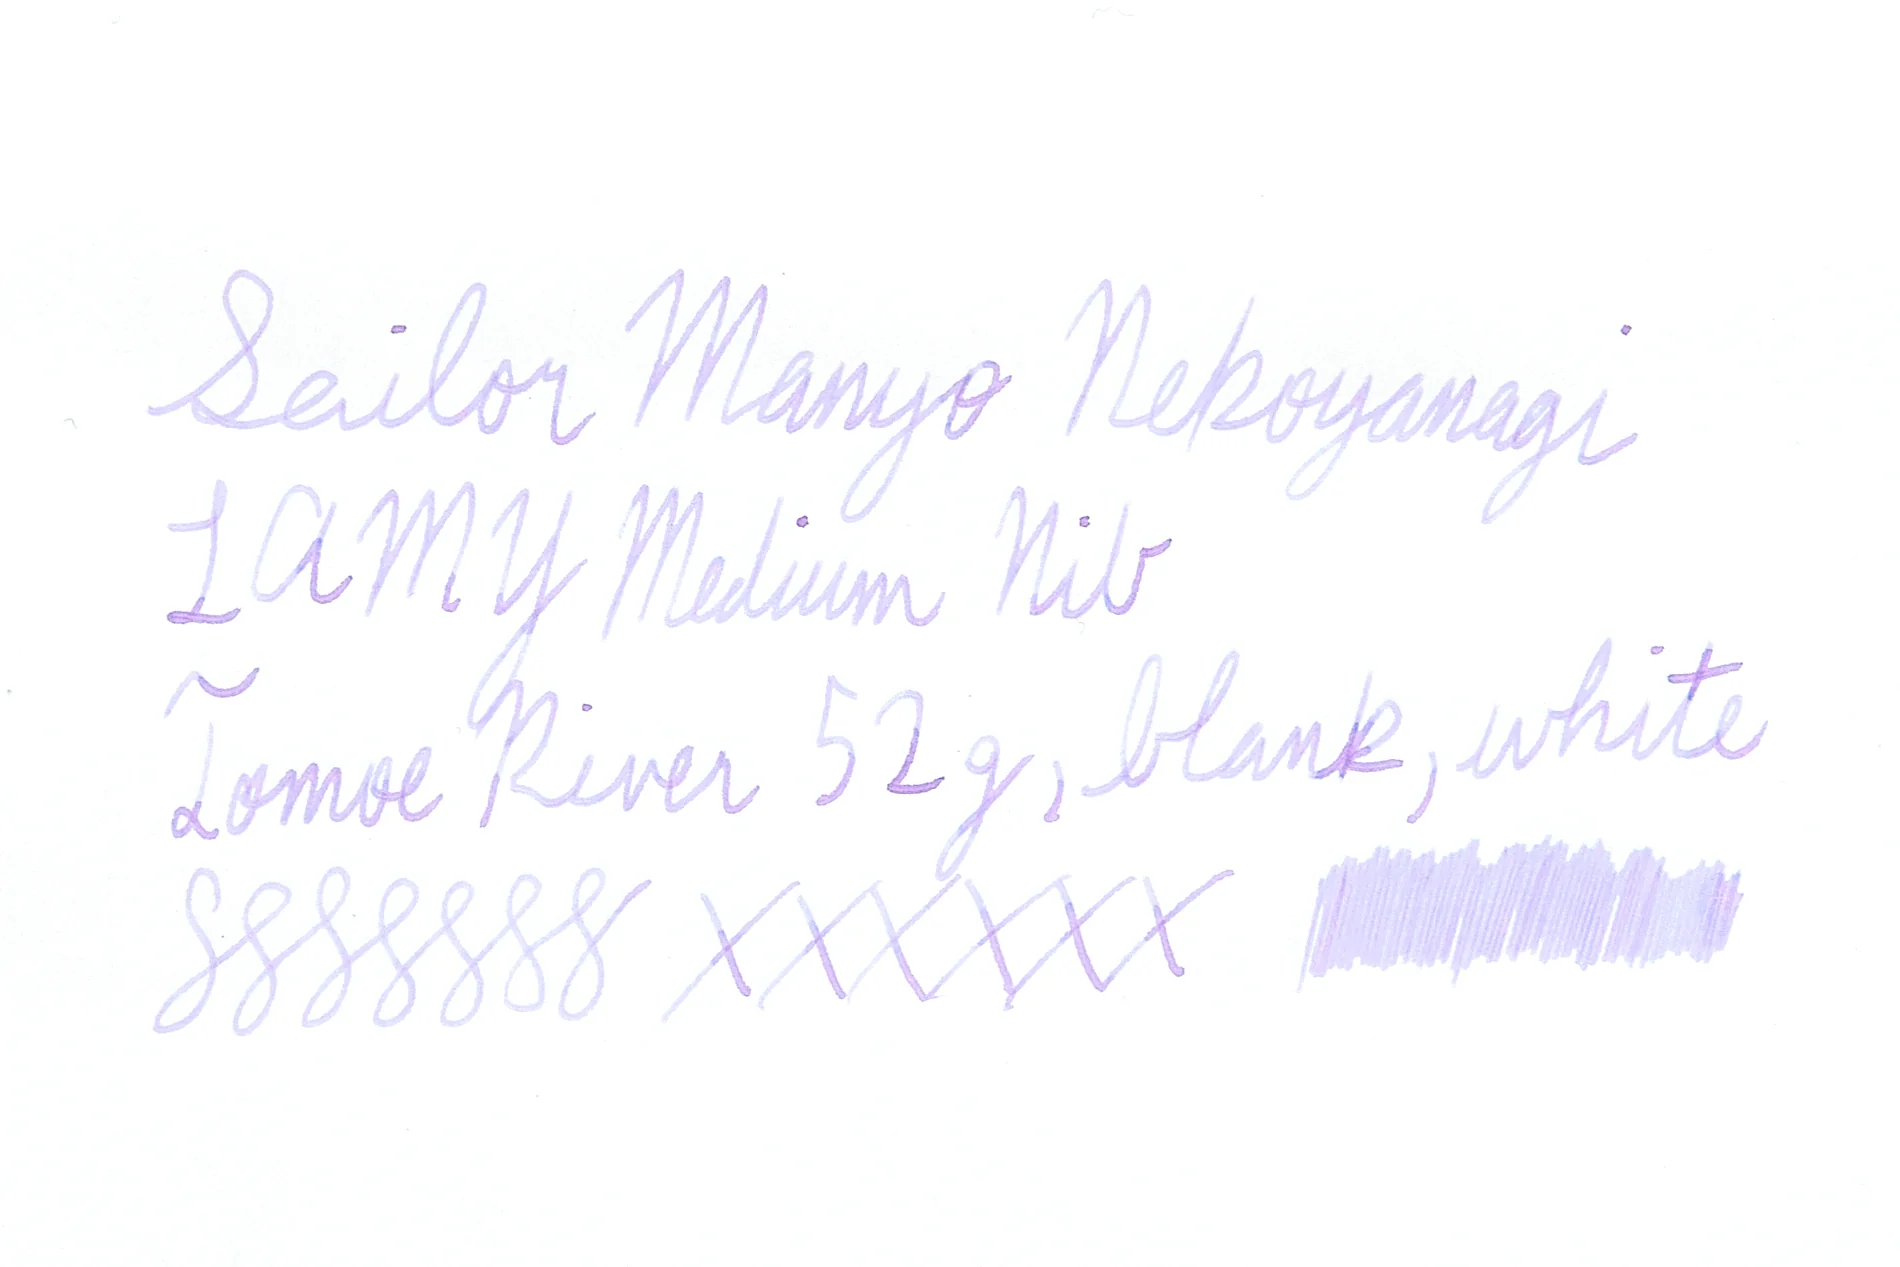 Sailor Manyo Nekoyanagi
LAMY Medium Nib
Tomoe River 52g, blank, white